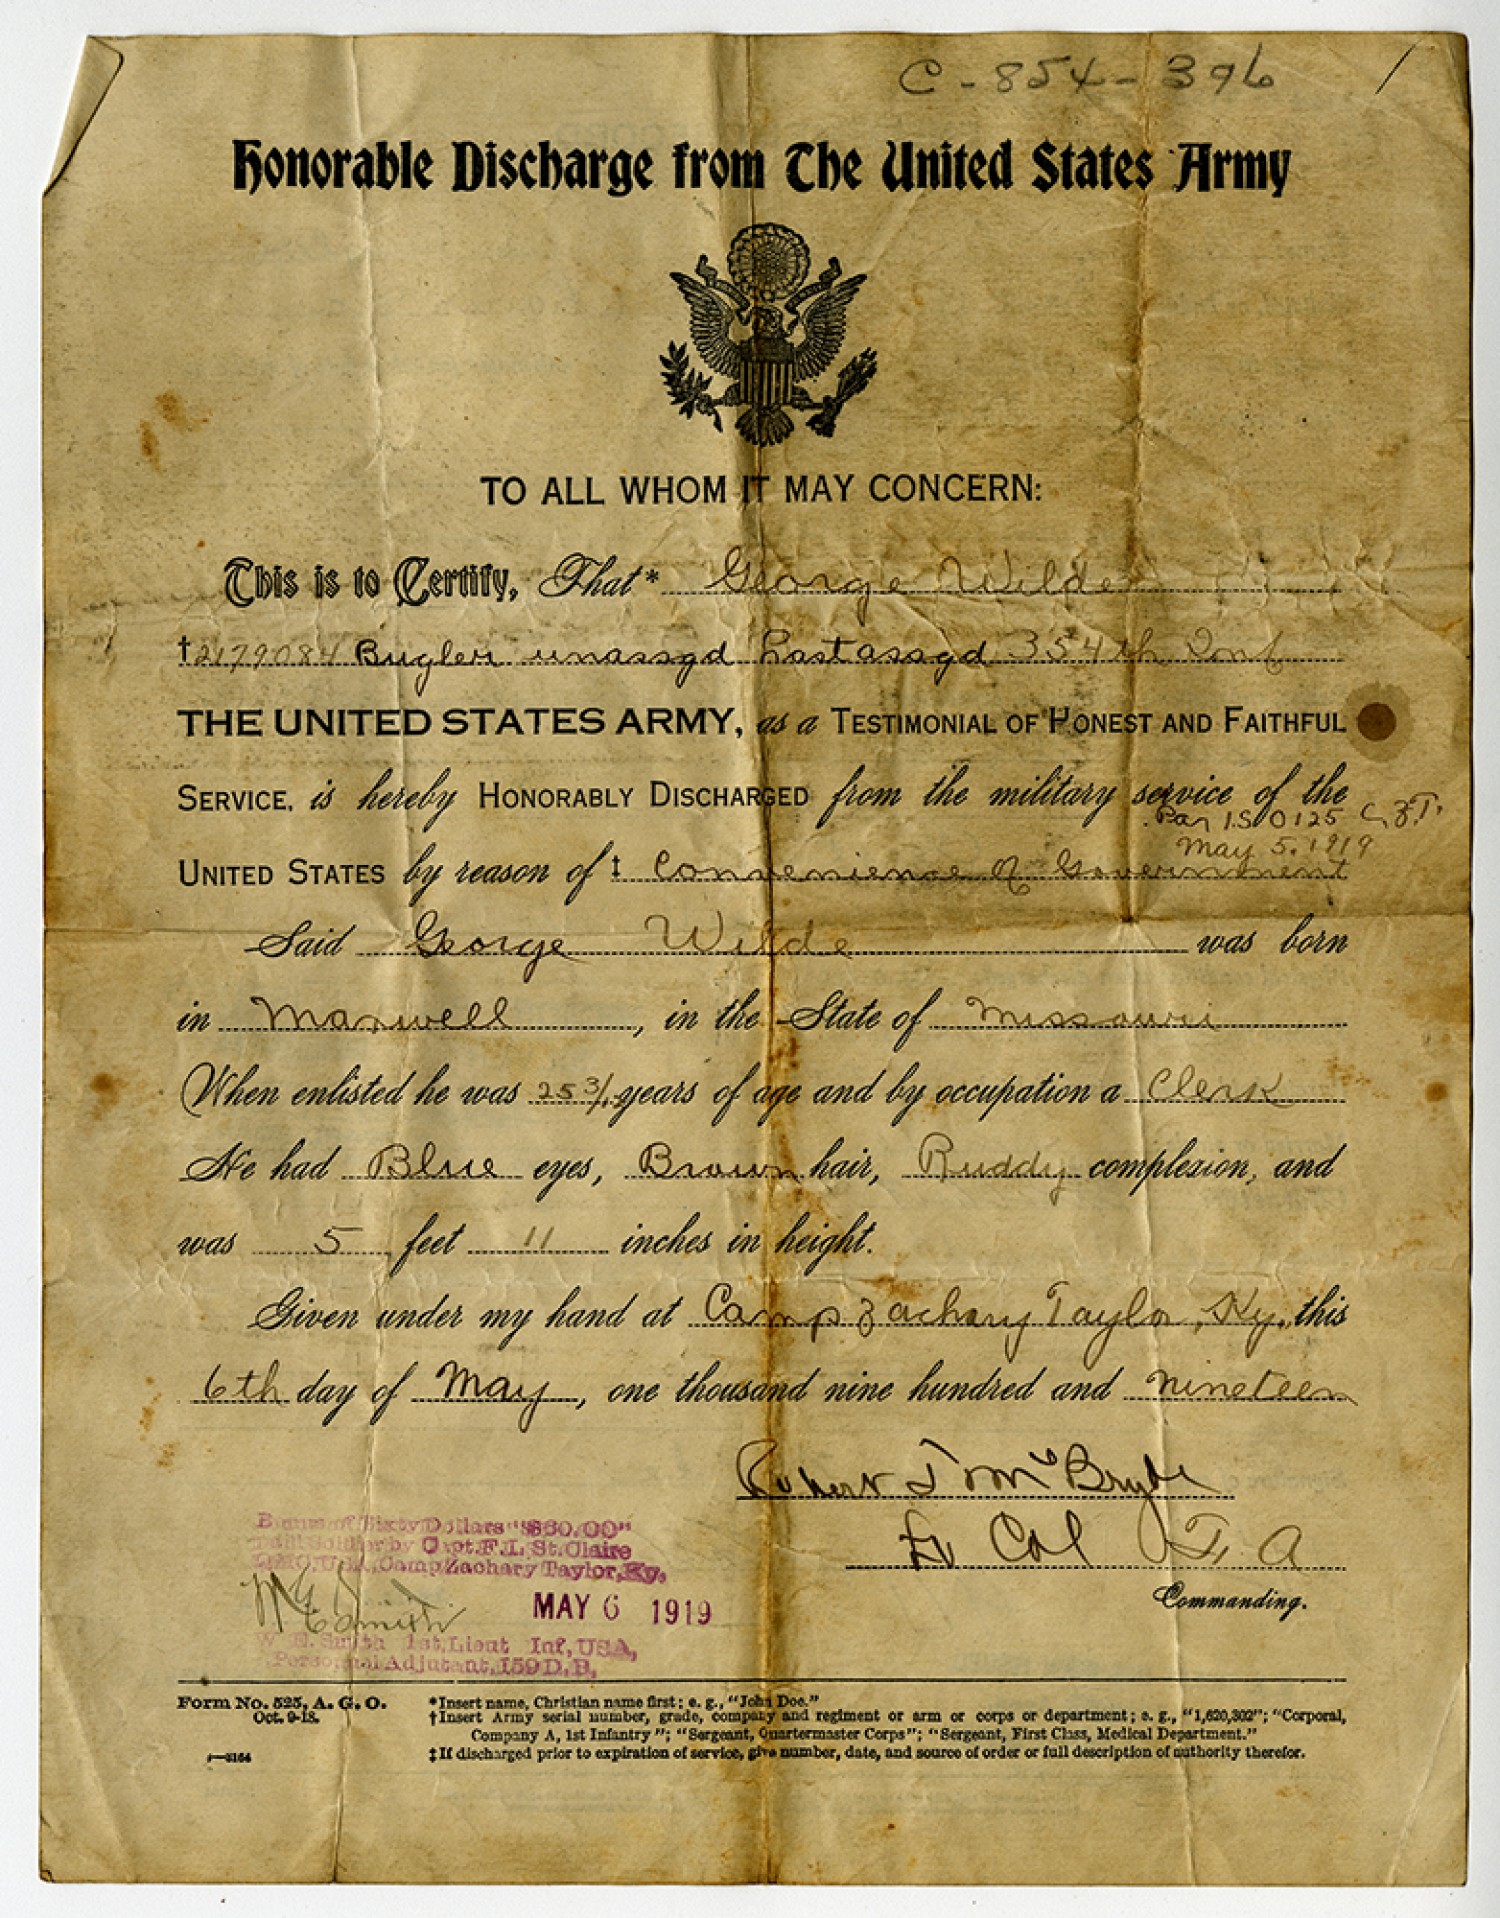 C-854-396 /
Honorable Discharge from The United States Army
TO ALL WHOM IT MAY CONCERN:
This is to Certify, That* George Wilde
†2179084 Bugler unassgd Last assgd 354th Inf
THE UNITED STATES ARMY, as a TESTIMONIAL OF HONEST AND FAITHFUL
SERVICE, is hereby HONORABLY DISCHARGED from the military service of the
Par 1 S O 125 C.Z.T.
May 5. 1919
UNITED STATES by reason of ‡ Convenience of Government
Said George Wilde was born
in Maxwell, in the State of Missouri
When enlisted he was 25 3/12 years of age and by occupation a Clerk
He had Blue eyes, Brown hair, Ruddy complexion, and
was 5 feet 11 inches in height.
Given under my hand at Camp Zachary Taylor, Ky. this
6th day of May, one thousand nine hundred and nineteen
Robert J McBryde
Lt Col F. A
Commanding.
Bonus of Sixty Dollars "$60.00"
Paid Soldier by Capt. F. L. St. Claire
Q.M.C. U.S.A. Camp Zachary Taylor, Ky.
MAY 6 1919
W E Smith
W. E. Smith 1st. Lieut Inf, USA,
Personnal Adjutant, 159 D. B,
Form No. 525, A. G. O.
Oct. 9-18.
*Insert name, Christian name first; e. g., "John Doe."
†Insert Army serial number, grade, company and regiment or arm or corps or department; e. g., "1,620,302"; "Corporal,
Company A, 1st Infantry"; "Sergeant, Quartermaster Corps"; "Sergeant, First Class, Medical Department."
‡If discharged prior to expiration of service, give number, date, and source of order or full description of authority therefor.